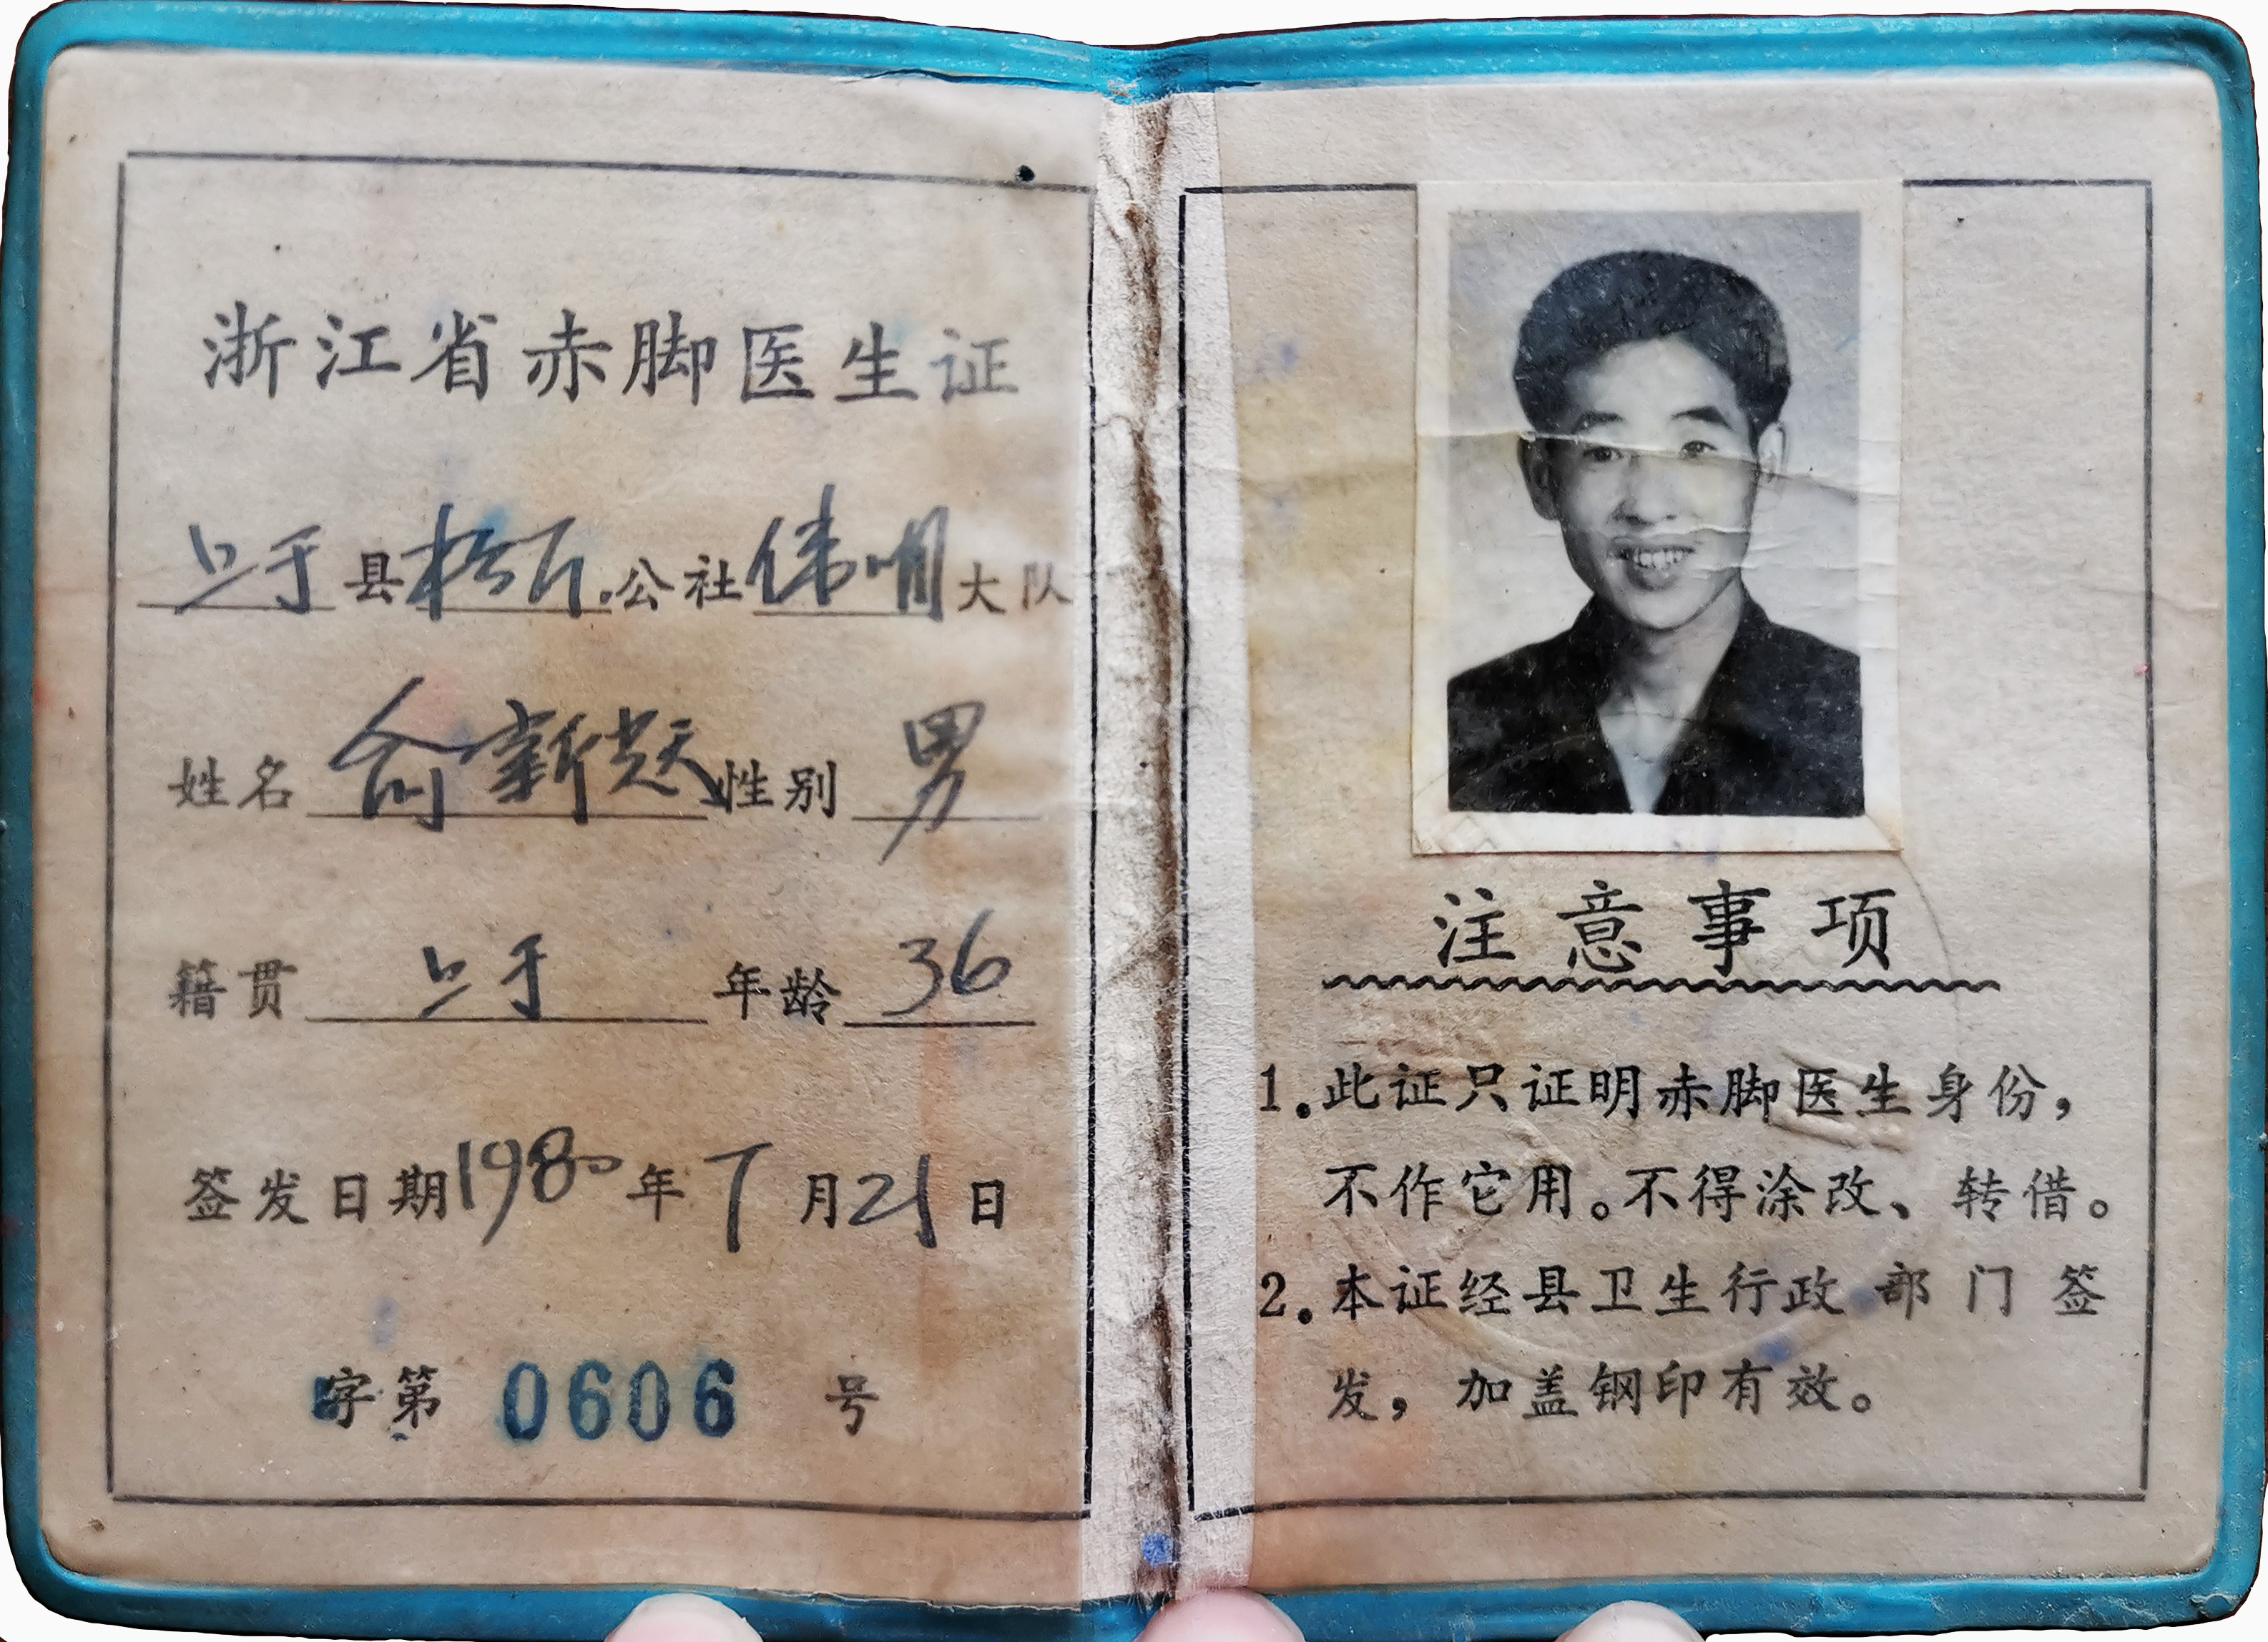 浙江省赤脚医生证
上于县 公社伟明大队
姓名 俞新 性别 男
籍贯 上于 年龄 36
签发日期1980年7月21日
字第 0606 号
注意事项
1.此证只证明赤脚医生身份,
不作它用。不得涂改、转借。
2.本证经县卫生行政部门签
发,加盖钢印有效。